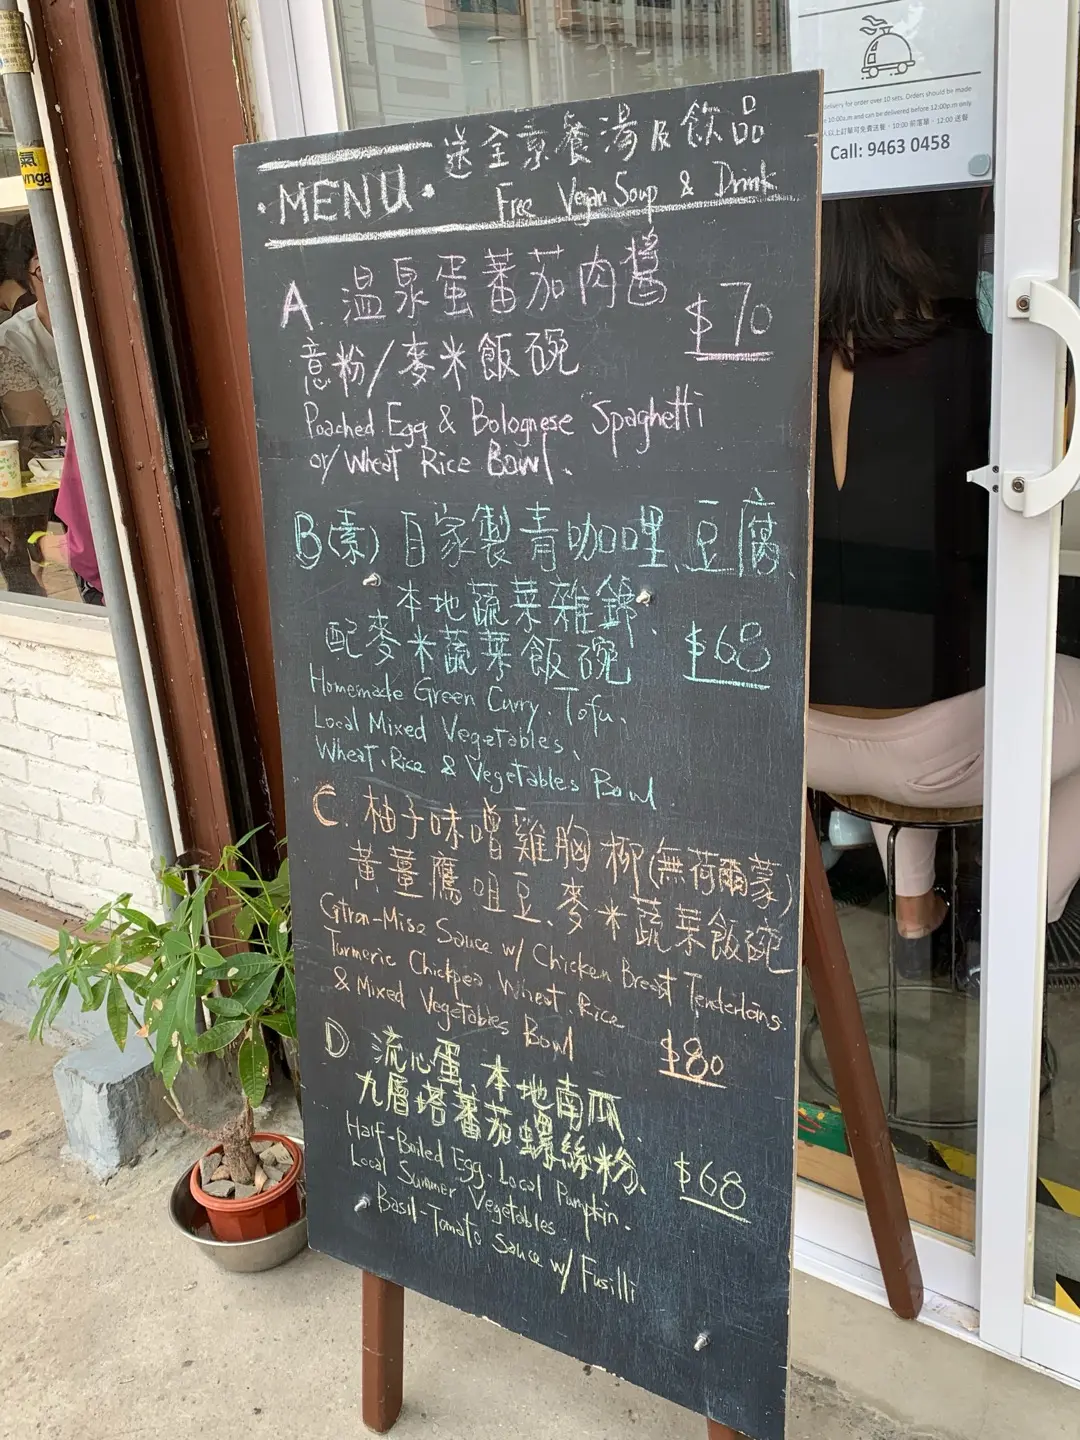 送全京餐湯及飲品
·MENU·
Free Vegan Soup & Drink
A. 温泉蛋蕃茄肉醬
意粉/麥米飯碗
$70
Poached Egg & Bolognese Spaghetti
or/Wheat Rice Bowl.
B(素) 自家製青咖哩、豆腐、
本地蔬菜雜錦、
配麥米蔬菜飯碗
$68
Homemade Green Curry. Tofu、
Local Mixed Vegetables、
Wheat.Rice & Vegetables Bowl
C. 柚子味噌雞胸柳(無荷爾蒙)
黃薑鷹咀豆、麥米蔬菜飯碗
Citron-Miso Sauce w/ Chicken Breast Tenderloins
Turmeric Chickpea. Wheat.Rice
& Mixed Vegetables Bowl
$80
D 流心蛋 本地南瓜
九層塔蕃茄螺絲粉、
$68
Half-Boiled Egg. Local Pumpkin.
Local Summer Vegetables.
Basil-Tomato Sauce w/ Fusilli
delivery for order over 10 sets. Orders should be made
10:00a.m and can be delivered before 12:00p.m only
以上訂單可免費送餐，10:00 前落單，12:00 送餐
Call: 9463 0458
氣